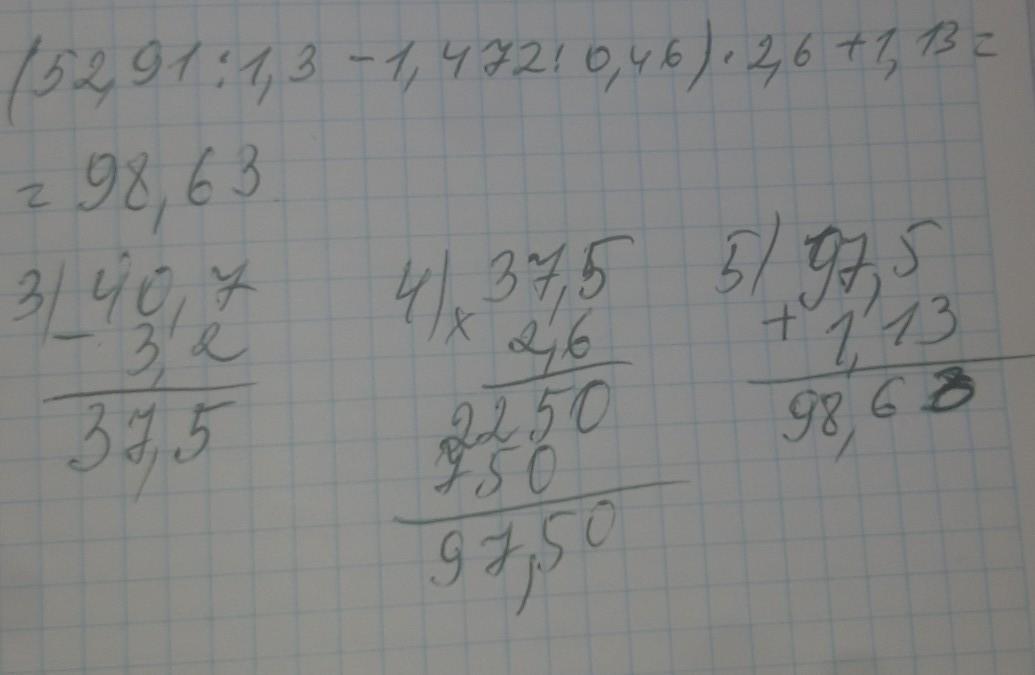 (52,91:1,3 - 1,472:0,46)·2,6+1,13=
= 98,63
3) 40,7
- 3,2
37,5
4) 37,5
x 2,6
2250
750
97,50
5) 97,5
+ 1,13
98,63